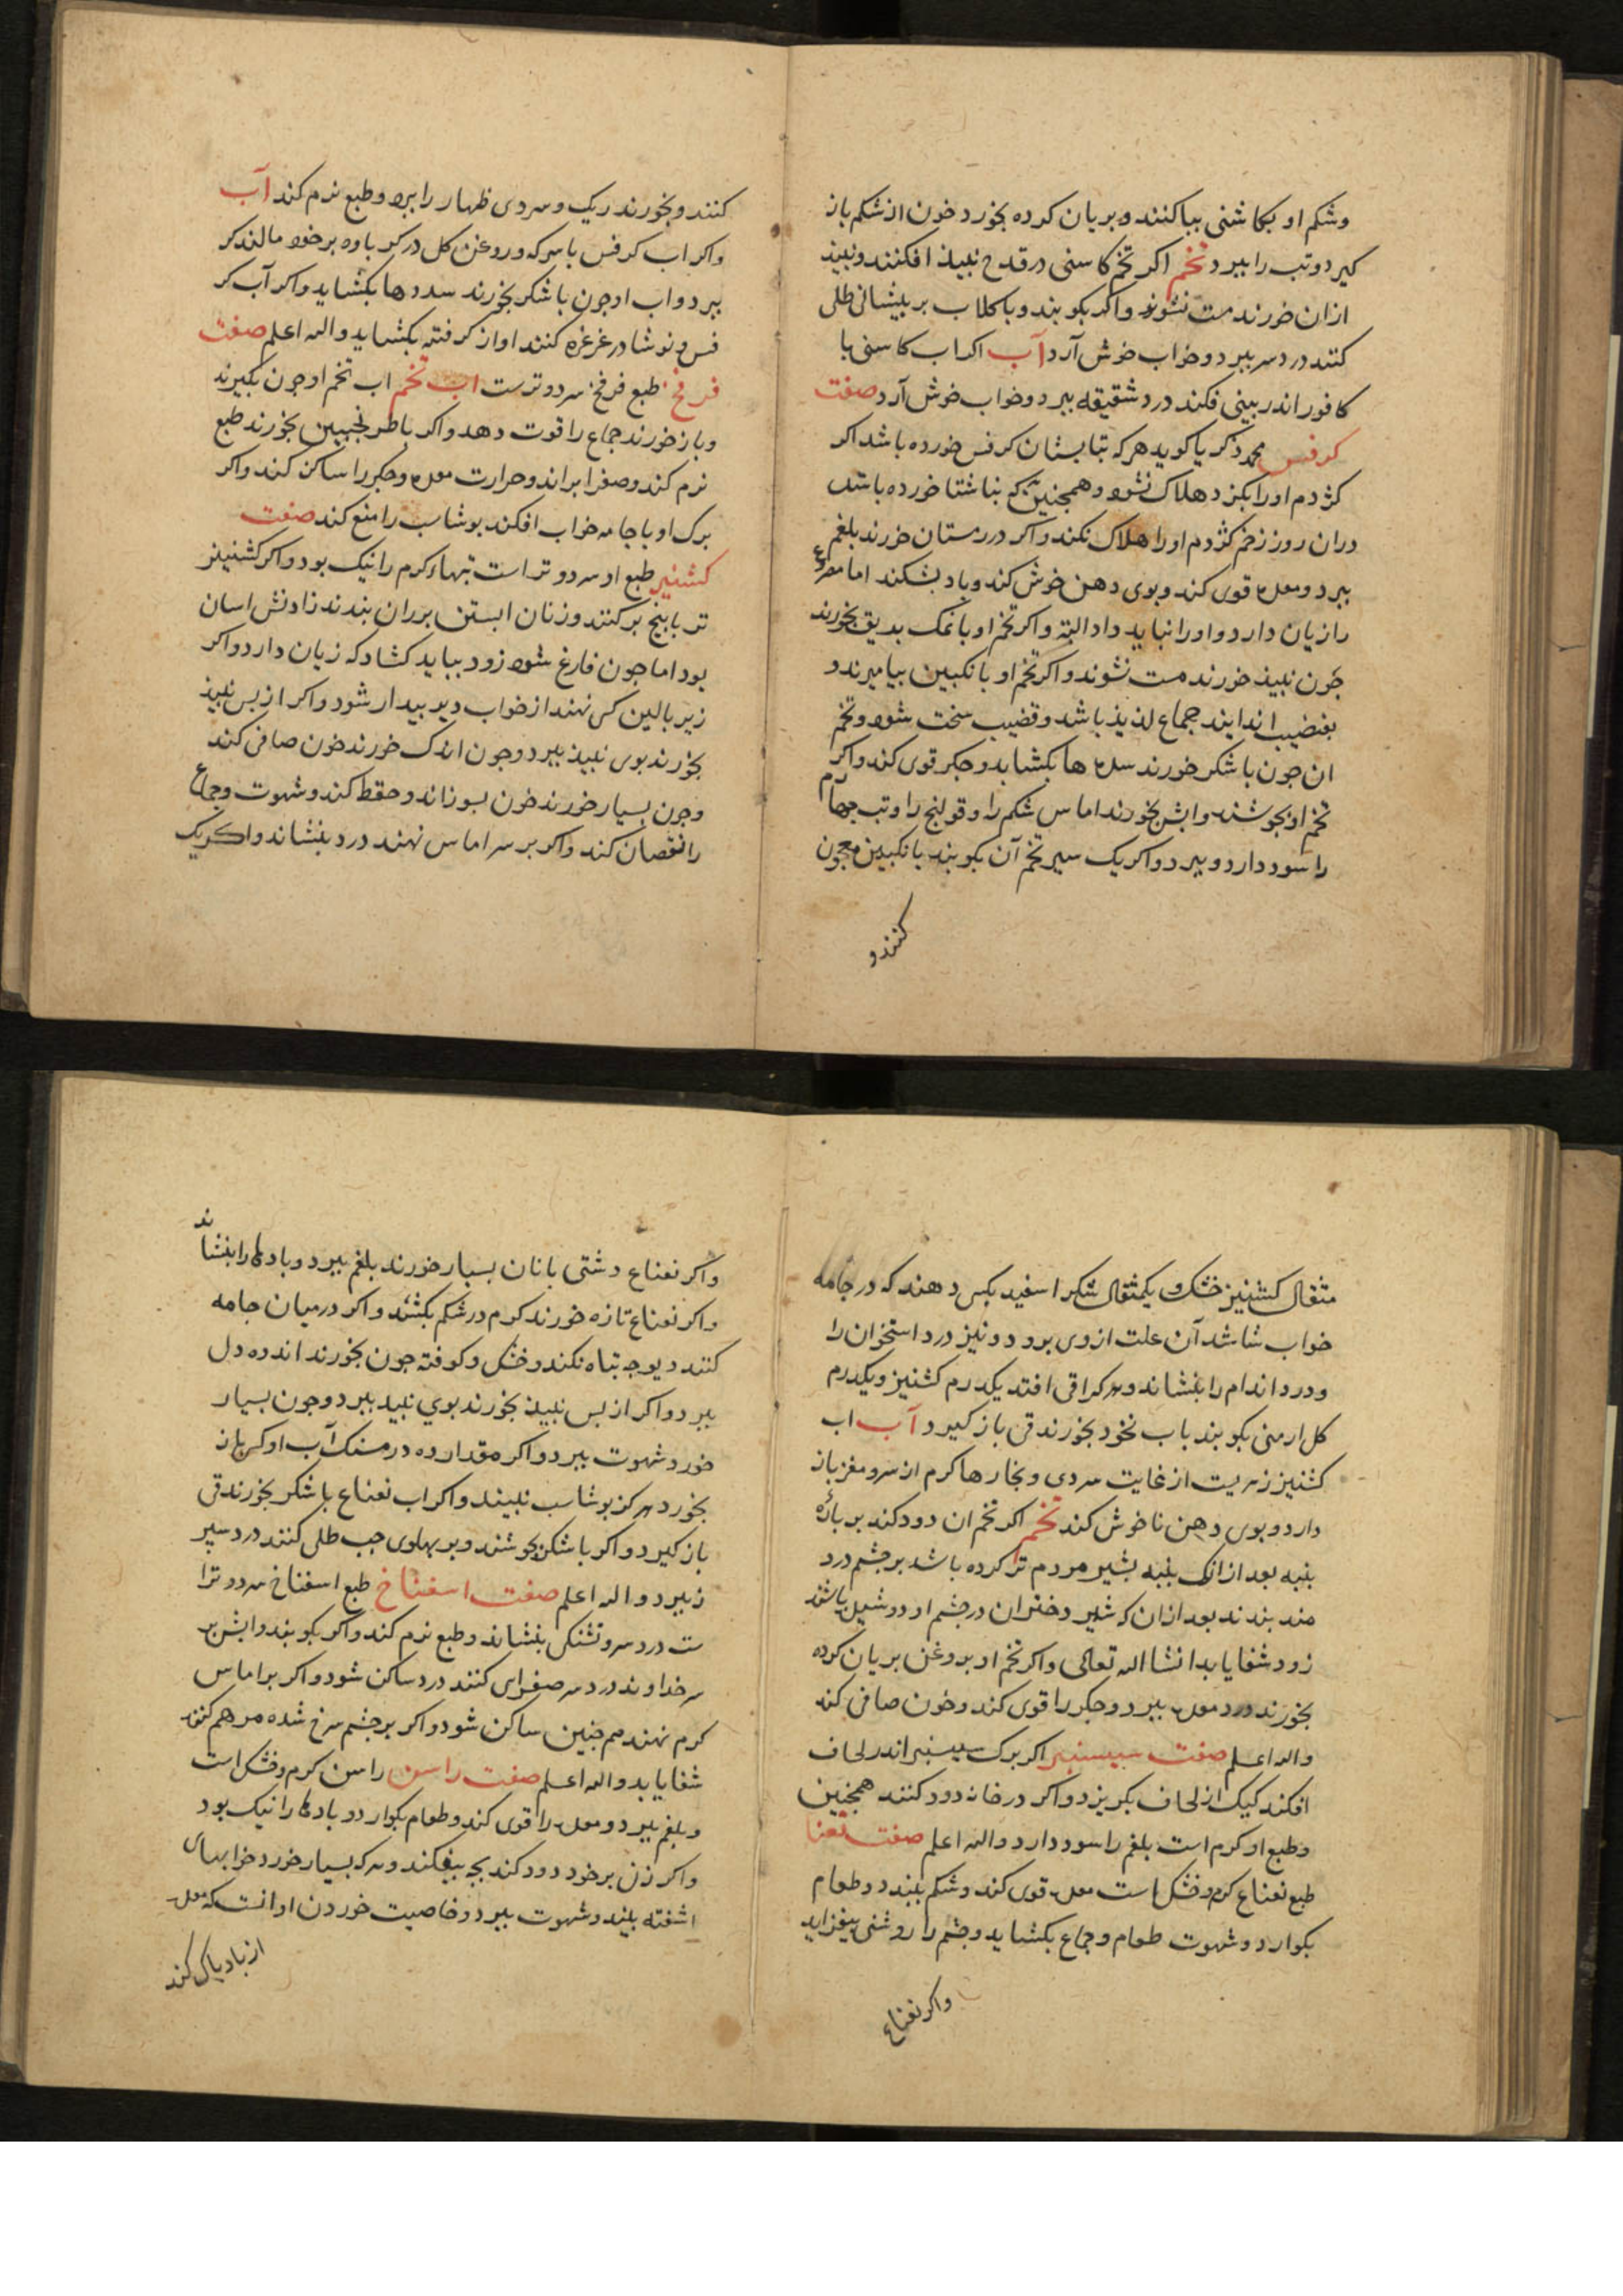 وشکم او بکاشنی بیاکنند و بریان کرده بخورد خون از شکم باز
کیرد و تب را ببرد تخم اکر تخم کاسنی در قدح نبیذ افکنند و نبیذ
ازان خورند مست نشوند و اکر بکوبند و با کلاب بر پیشانی طلی
کنند درد سر ببرد و خواب خوش آرد آب اکر اب کاسنی با
کافور اندر بینی فکند درد شقیقه ببرد و خواب خوش آرد صفت
کرفس محمد ذکریا کوید هر که بتابستان کرفس خورده باشد اکر
کژدم او را بکزد هلاک شود و همجنین که بناشتا خورده باشد
دران روز زخم کژدم او را هلاک نکند و اکر در زمستان خورند بلغم
ببرد و معده قوی کند و بوی دهن خوش کند و باد بشکند اما مصروع
را زیان دارد و او را نباید داد البته و اکر تخم او با نمک بدیق بخورند
جون نبیذ خورند مست نشوند و اکر تخم او با نکبین بیامیزند و
بقضیب اندایند جماع لذیذ باشد و قضیب سخت شود و تخم
ان جون با شکر خورند سده ها بکشاید و جکر قوی کند و اکر
تخم او بجوشند و ابش بخورند اماس شکم را و قولنج را و تب جهارم
را سود دارد و ببرد و اکر یک سیر تخم آن بکوبند با نکبین معجون
کنند و
کنند و بخورند ریک و سردی ظهار را ببرد و طبع نرم کند آب
و اکر اب کرفس با سرکه و روغن کل در کرباوه بر خود مالند کر
ببرد و اب او جون با شکر بخورند سددها بکشاید و اکر آب کر
فس و نوشادر غرغره کنند اواز کرفته بکشاید والله اعلم صفت
فرفخ طبع فرفخ سرد و ترست اب تخم اب تخم او جون بکیرند
و باز خورند جماع را قوت دهد و اکر با طرنجبین بخورند طبع
نرم کند و صفرا براند و حرارت معده و جکر را ساکن کند و اکر
برک او با جامه خواب افکند بوشاسب را منع کند صفت
کشنیز طبع او سرد و تر است تبهاء کرم را نیک بود و اکر کشنینز
تر با بیخ برکنند و زنان ابستن بر ران بندند زادنش اسان
بود اما جون فارغ شود زود بباید کشاد که زیان دارد و اکر
زیر بالین کسی نهند از خواب دیر بیدار شود و اکر از بس نبیذ
بخورند بوی نبیذ ببرد و جون اندک خورند خون صافی کند
و جون بسیار خورند خون بسوزاند و حفظ کند و شهوت و جماع
را نقصان کند و اکر بر سر اماس نهند درد بنشاند و اکر یک
مثقال کشنیز خشک و یکمثقال شکر اسفید بکسی دهند که در جامه
خواب شاشد آن علت از وی برود و نیز درد استخوان را
و درد اندام را بنشاند و هر کرا قی افتد یکدرم کشنیز و یکدرم
کل ارمنی بکوبند باب نخود بخورند قی باز کیرد آب اب
کشنیز زهریست از غایت سردی و بخارها کرم از سر و مغز باز
دارد و بوی دهن ناخوش کند تخم اکر تخم ان دود کند بر باره
بنبه بعد از انک بنبه بشیر مردم ترا کرده باشد بر جشم درد
مند بندند بعد ازان که شیر دختران در جشم او دوشیده باشند
زود شفا یابد انشاالله تعالی و اکر تخم او بروغن بریان کرده
بخورند درد معده ببرد و جکر را قوی کند و خون صافی کند
والله اعلم صفت سیسنبر اکر برک سیسنبر اندر لحاف
افکند کیک از لحاف بکریزد و اکر در خانه دود کنند همجنین
و طبع او کرم است بلغم را سود دارد والله اعلم صفت نعنا
طبع نعناع کرم و خشک است معده قوی کند و شکم ببندد و طعام
بکوارد و شهوت طعام و جماع بکشاید و جشم را روشنی بیفزاید
و اکر نعناع
و اکر نعناع دشتی با نان بسیار خورند بلغم ببرد و بادها را بنشاند
و اکر نعناع تازه خورند کرم در شکم بکشند و اکر در میان جامه
کنند دیوجه تباه نکند و خشک و کوفته جون بخورند اندوه دل
ببرد و اکر از بس نبیذ بخورند بوی نبید ببرد و جون بسیار
خورد شهوت ببرد و اکر مقدار ده درمسنک آب او کسی باز
بخورد هرکز بوشاسب نبیند و اکر اب نعناع با شکر بخورند قی
باز کیرد و اکر با شکر بجوشند و بر بهلوی جب طلی کنند درد سپر
ز ببرد والله اعلم صفت اسفناخ طبع اسفناخ سرد و ترا
ست درد سر و تشنکی بنشاند و طبع نرم کند و اکر بکوبند و ابش بر
سر خداوند درد سر صفرای کنند درد ساکن شود و اکر بر اماس
کرم نهند هم جنین ساکن شود و اکر بر جشم سرخ شده مرهم کنند
شفا یابد والله اعلم صفت راسن راسن کرم و خشک است
و بلغم ببرد و معده را قوی کند و طعام بکوارد و بادها را نیک بود
و اکر زن بر خود دود کند بجه بیفکند و هر که بسیار خورد خوابهای
اشفته بیند و شهوت ببرد و خاصیت خوردن او انست که معده
از باد پاک کند